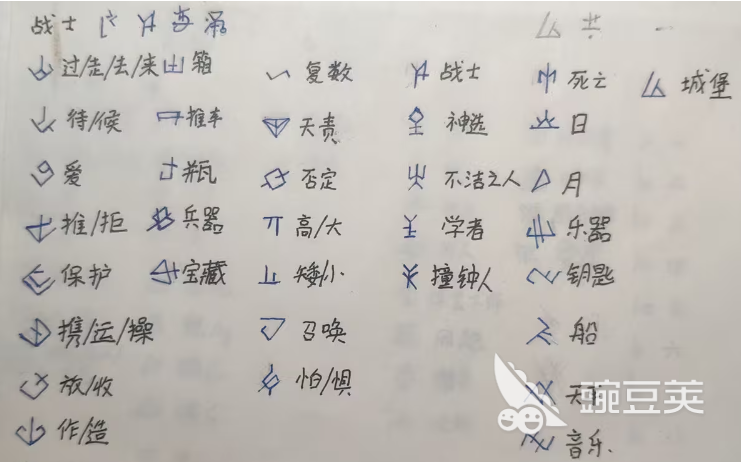 战士
过/走/去/来 箱 复数 战士 死亡 城堡
待/候 推车 天责 神选 日
爱 瓶 否定 不洁之人 月
推/拒 兵器 高/大 学者 乐器
保护 宝藏 矮/小 撞钟人 钥匙
携/运/操 召唤 船
放/收 怕/惧
作/造 音乐
豌豆荚